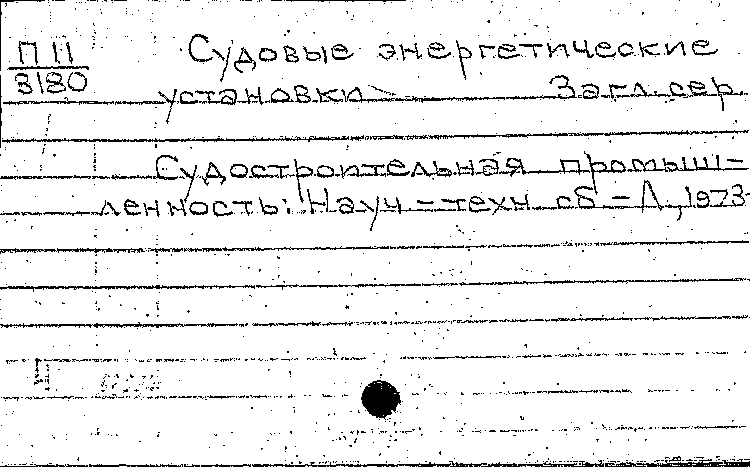 П 11
3180
Судовые энергетические
установки Загл. сер.
Судостроительная промыш-
ленность: Науч-техн сб – Л., 1973-
Ч